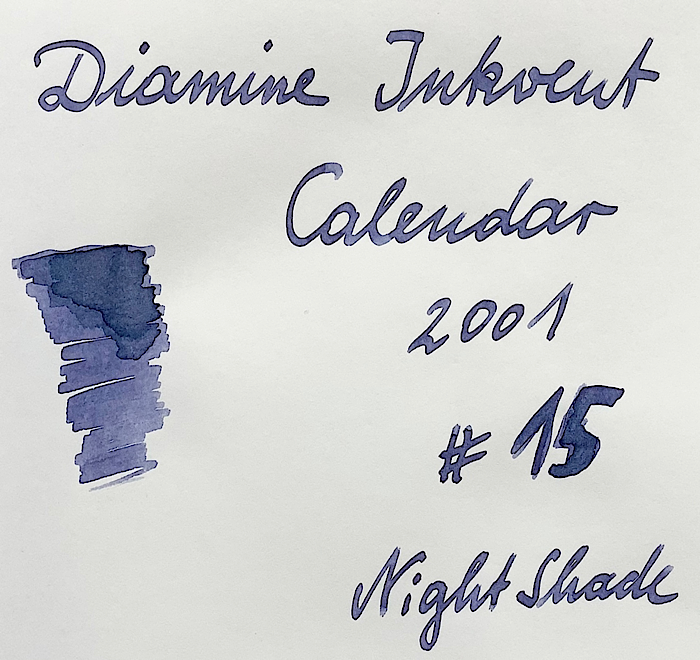 Diamine Inkvent
Calendar
2001
# 15
Night Shade